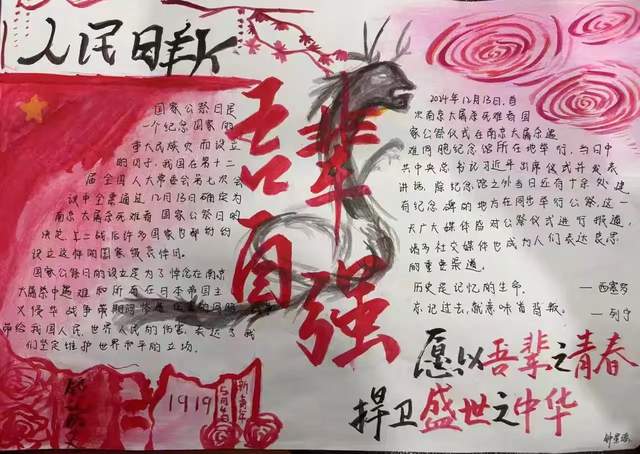 人民日报
吾辈
自强
国家公祭日是
一个纪念国家的
重大民族灾而设立
的日子,我国在第十二
届全国人大常委会第七次会
议中全票通过12月13日确定为
南京大屠杀死难者国家公祭日的
决定.二战后许多国家也都纷纷
设立这样的国家级哀悼日.
国家公祭日的设立是为了悼念在南京
大屠杀中遇难和所有在日本帝国主
义侵华战争期间惨遭
带给我国人民,世界人民的伤害,表达了我
们坚定维护世界和平的立场.
2024年12月13日,首
次南京大屠杀死难者国
家公祭仪式在南京大屠杀遇
难同胞纪念馆所在地举行,当日中
共中央总书记习近平出席仪式并发表
讲话.除纪念馆之外当日近有十余处建
有纪念碑的地方在同步举行公祭,这一
天广大媒体应对公祭仪式进行报道,
诸多社交媒体也成为人们表达哀思
的重要渠道.
历史是记忆的生命.
——西塞罗
忘记过去,就意味着背叛.
——列宁
愿以吾辈之青春
捍卫盛世之中华
1919
5月4日
新青年